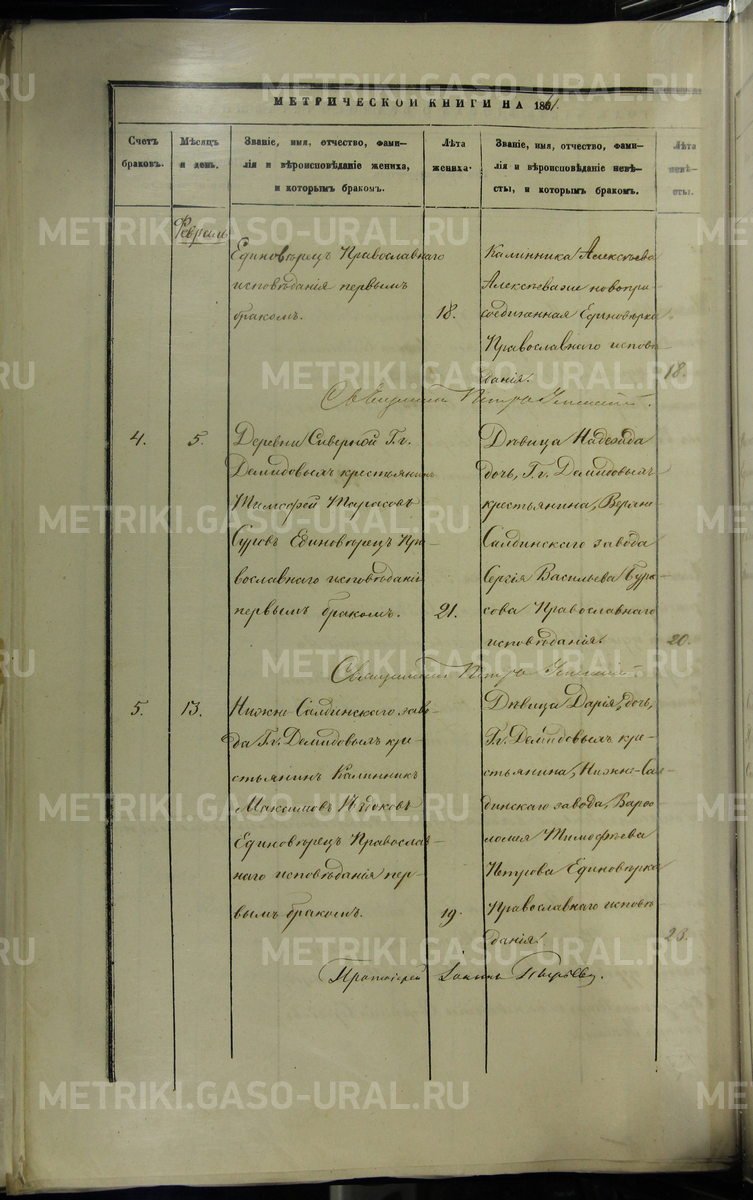 МЕТРИЧЕСКОЙ КНИГИ НА 1861.
Счетъ
браковъ.
Мѣсяцъ
и день.
Званіе, имя, отчество, фами-
лія и вѣроисповѣданіе жениха,
и которымъ бракомъ.
Лѣта
жениха.
Званіе, имя, отчество, фами-
лія и вѣроисповѣданіе невѣ-
сты, и которымъ бракомъ.
Лѣта
невѣ-
сты.
Февраль
Единовѣрецъ Православнаго
исповѣданія первымъ
бракомъ.
18.
Калинника Алексѣева
Алексѣева же новопри-
соединенная Единовѣрка
Православнаго исповѣ-
данія.
18.
Священникъ Петръ
4.
5.
Деревни Сѣверной Г.г.
Демидовыхъ крестьянинъ
Тимофей Тарасовъ
Суровъ Единовѣрецъ Пра-
вославнаго исповѣданія
первымъ бракомъ.
21.
Дѣвица Надежда
дочь, Г.г. Демидовыхъ
крестьянина, Верхне-
Салдинскаго завода
Сергія Васильева Бура-
сова Православнаго
исповѣданія.
20.
Священникъ Петръ
5.
13.
Нижне-Салдинскаго заво-
да Г.г. Демидовыхъ кре-
стьянинъ Калинникъ
Максимовъ
Единовѣрецъ Православ-
наго исповѣданія пер-
вымъ бракомъ.
19.
Дѣвица Дарія, дочь,
Г.г. Демидовыхъ кре-
стьянина, Нижне-Сал-
динскаго завода, Варѳо-
ломея Тимофѣева
Петрова Единовѣрка
Православнаго исповѣ-
данія.
23.
Протоіерей Іоаннъ
METRIKI.GASO-URAL.RU